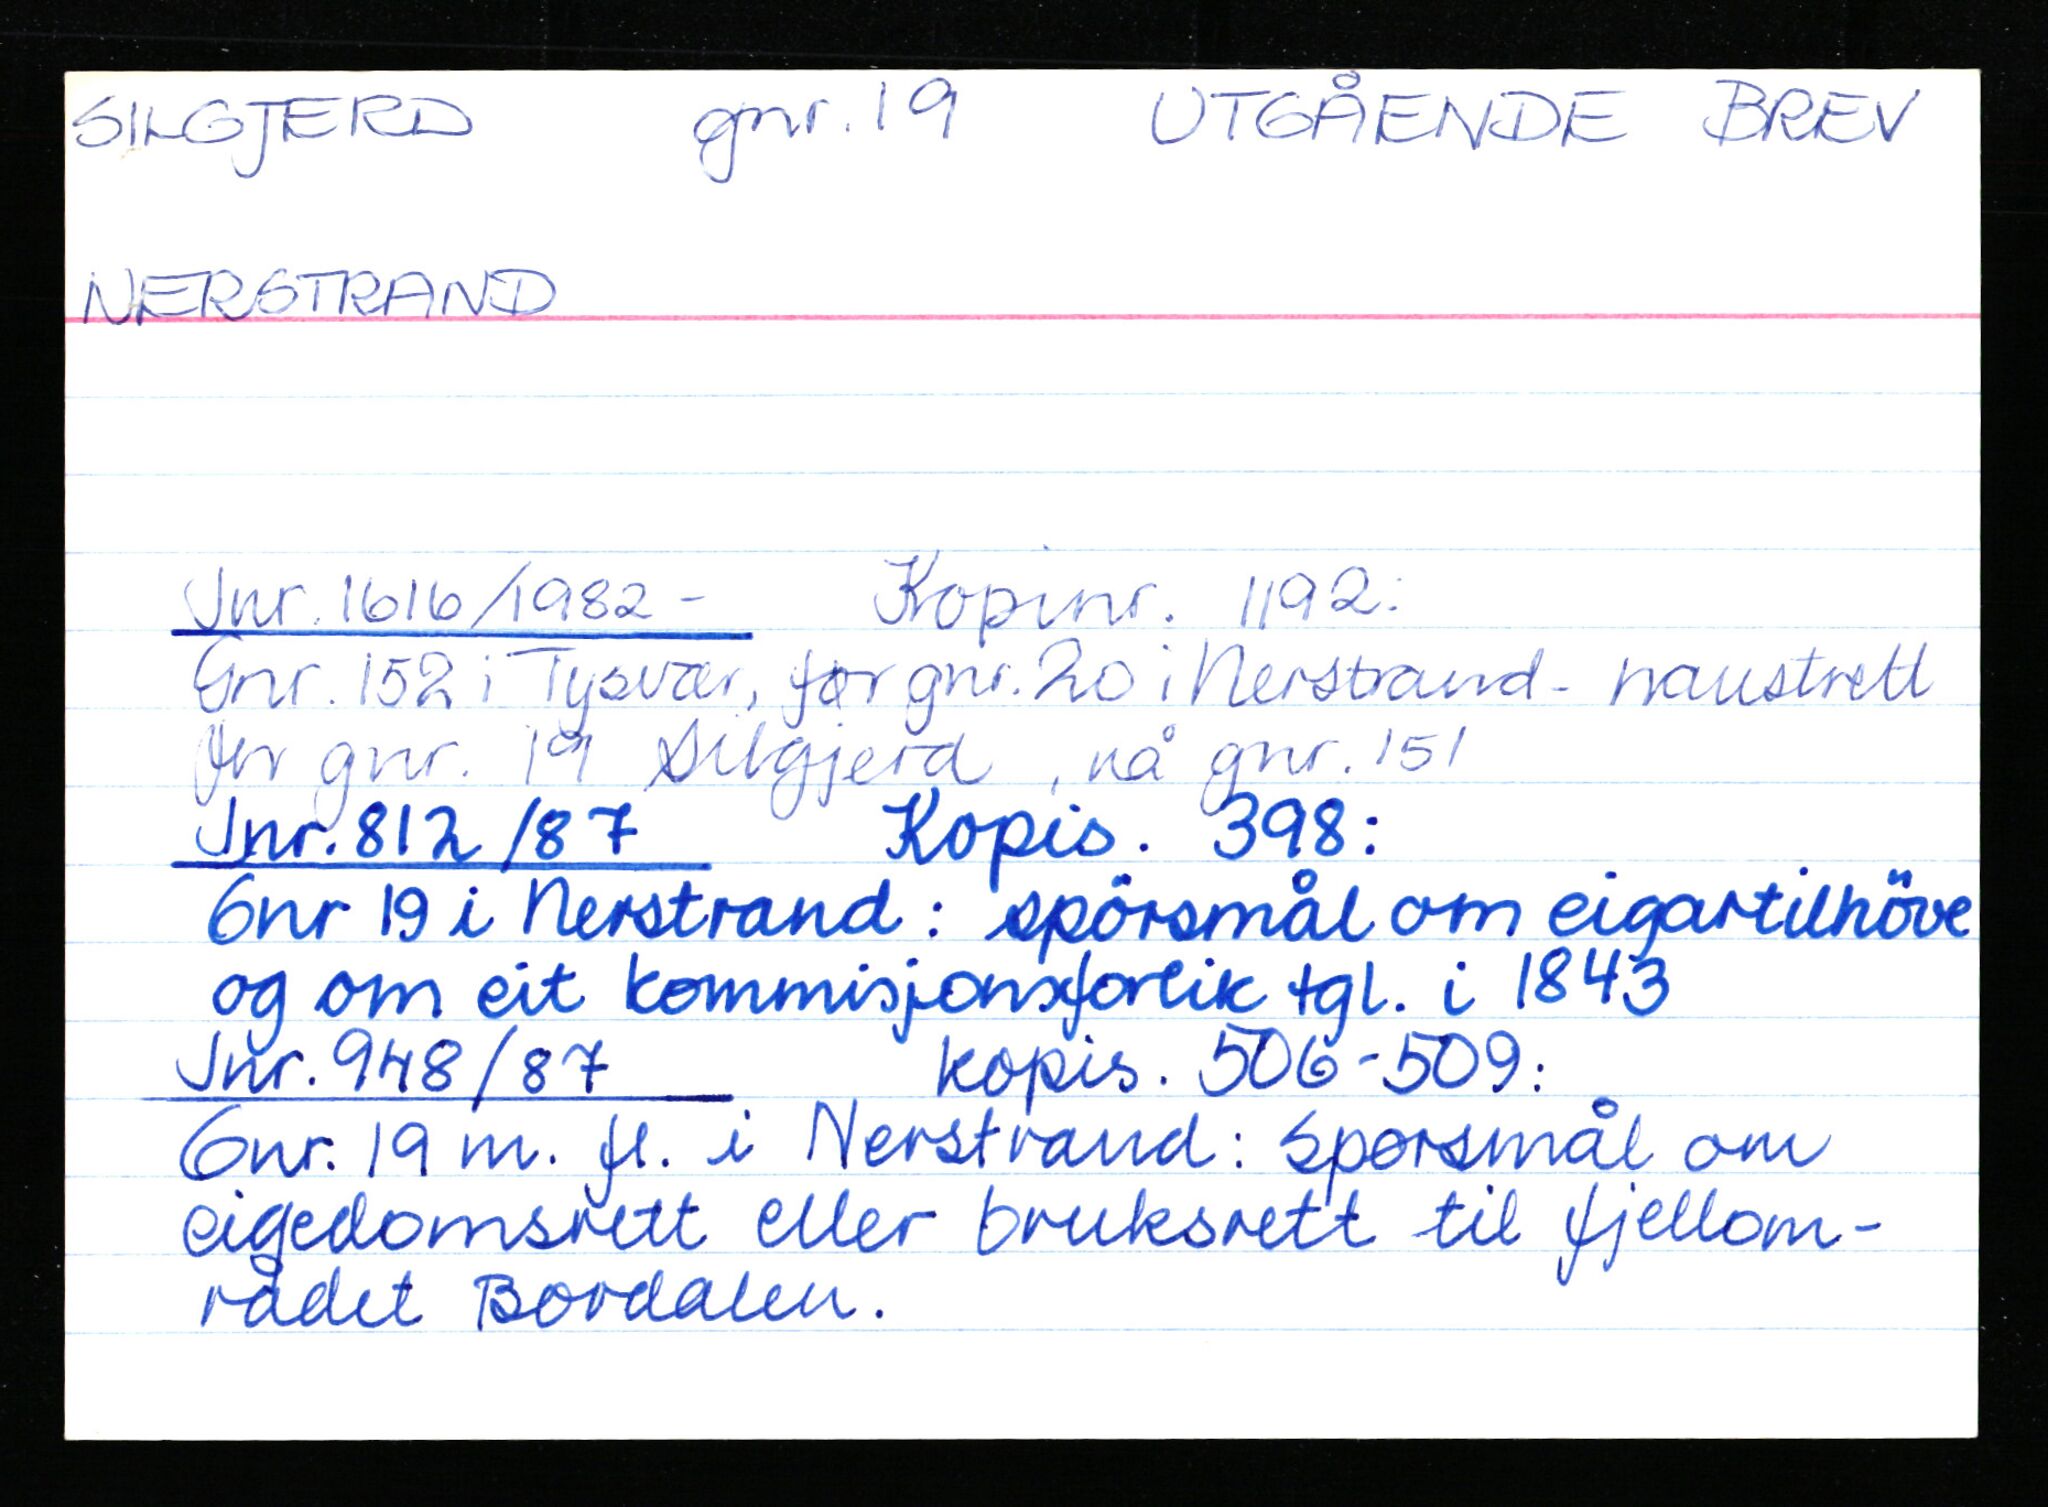 SILGJERD gnr. 19 UTGÅENDE BREV
NERSTRAND
Jnr. 1616/1982 - Kopinr. 1192:
Gnr. 152 i Tysvær, før gnr. 20 i Nerstrand - naustrett
for gnr. 19 Silgjerd, nå gnr. 151
Jnr. 812/87 Kopis. 398:
Gnr 19 i Nerstrand: spörsmål om eigartilhöve
og om eit kommisjonsforlik tgl. i 1843
Jnr. 948/87 kopis. 506-509:
Gnr. 19 m. fl. i Nerstrand: spørsmål om
eigedomsrett eller bruksrett til fjellom-
rådet Bordalen.